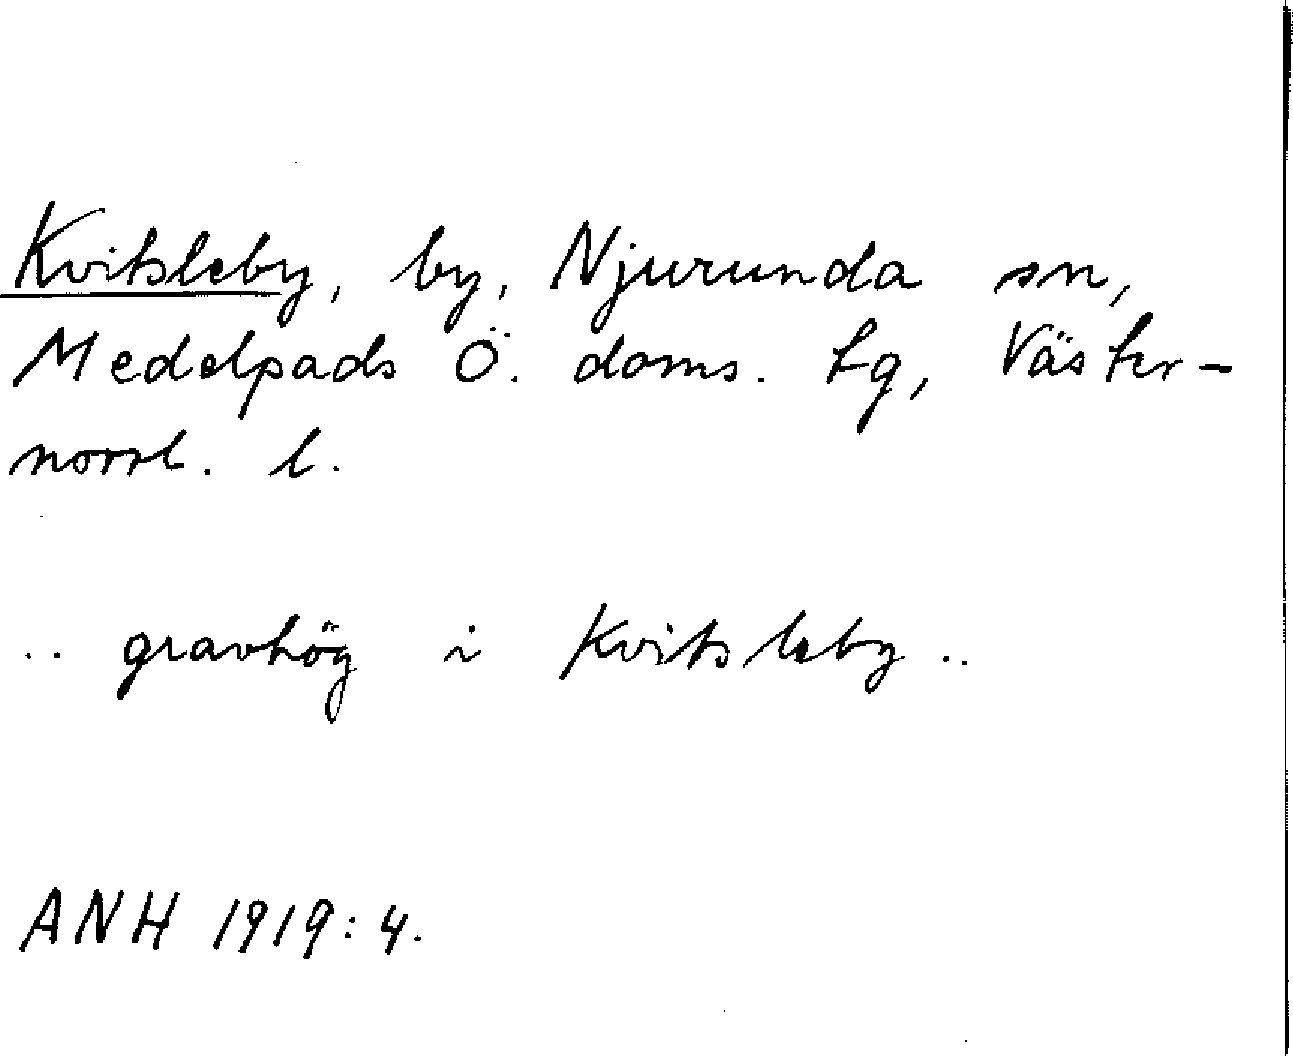 Kvitsleby, by, Njurunda sn,
Medelpads Ö. doms. tg, Väster-
norrl. l.
.. gravhög i Kvitsleby ..
ANH 1919:4.